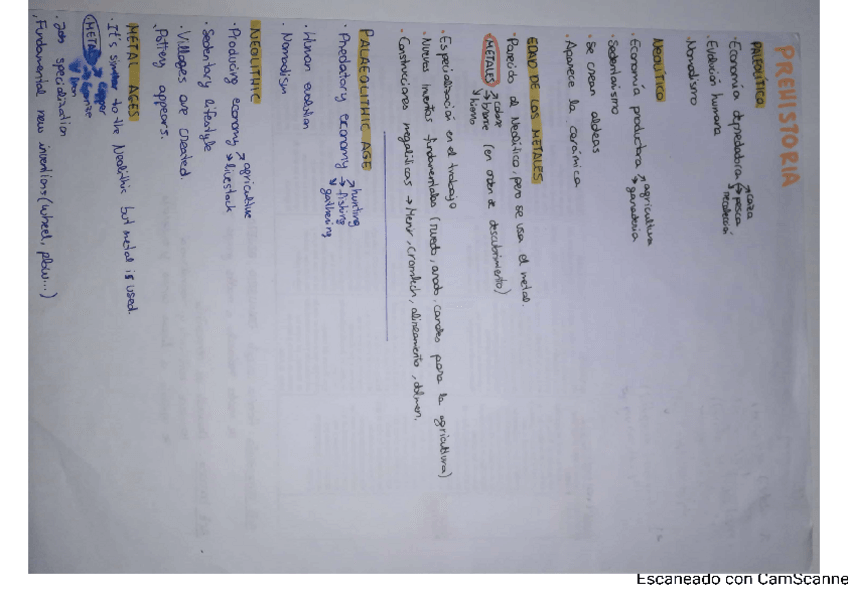 PREHISTORIA
PALEOLÍTICO
· Economía depredadora → caza
→ pesca
→ recolección
· Evolución humana
· Nomadismo
NEOLÍTICO
· Economía productora → agricultura
→ ganadería
· Sedentarismo
· Se crean aldeas
· Aparece la cerámica
EDAD DE LOS METALES
· Parecido al Neolítico, pero se usa el metal.
METALES → cobre
→ bronce (en orden de descubrimiento)
→ hierro
· Especialización en el trabajo
· Nuevos inventos fundamentales (rueda, arado, canales para la agricultura)
· Construcciones megalíticas → Menir, Cromlech, alineamiento, dolmen.
PALAEOLITHIC AGE
· Predatory economy → hunting
→ fishing
→ gathering
· Human evolution
· Nomadism
NEOLITHIC
· Producing economy → agriculture
→ livestock
· Sedentary lifestyle
· Villages are created.
· Pottery appears.
METAL AGES
· It's similar to the Neolithic but metal is used.
METALS → copper
→ bronze
→ iron
· Job specialization
· Fundamental new inventions (wheel, plow...)
Escaneado con CamScanne